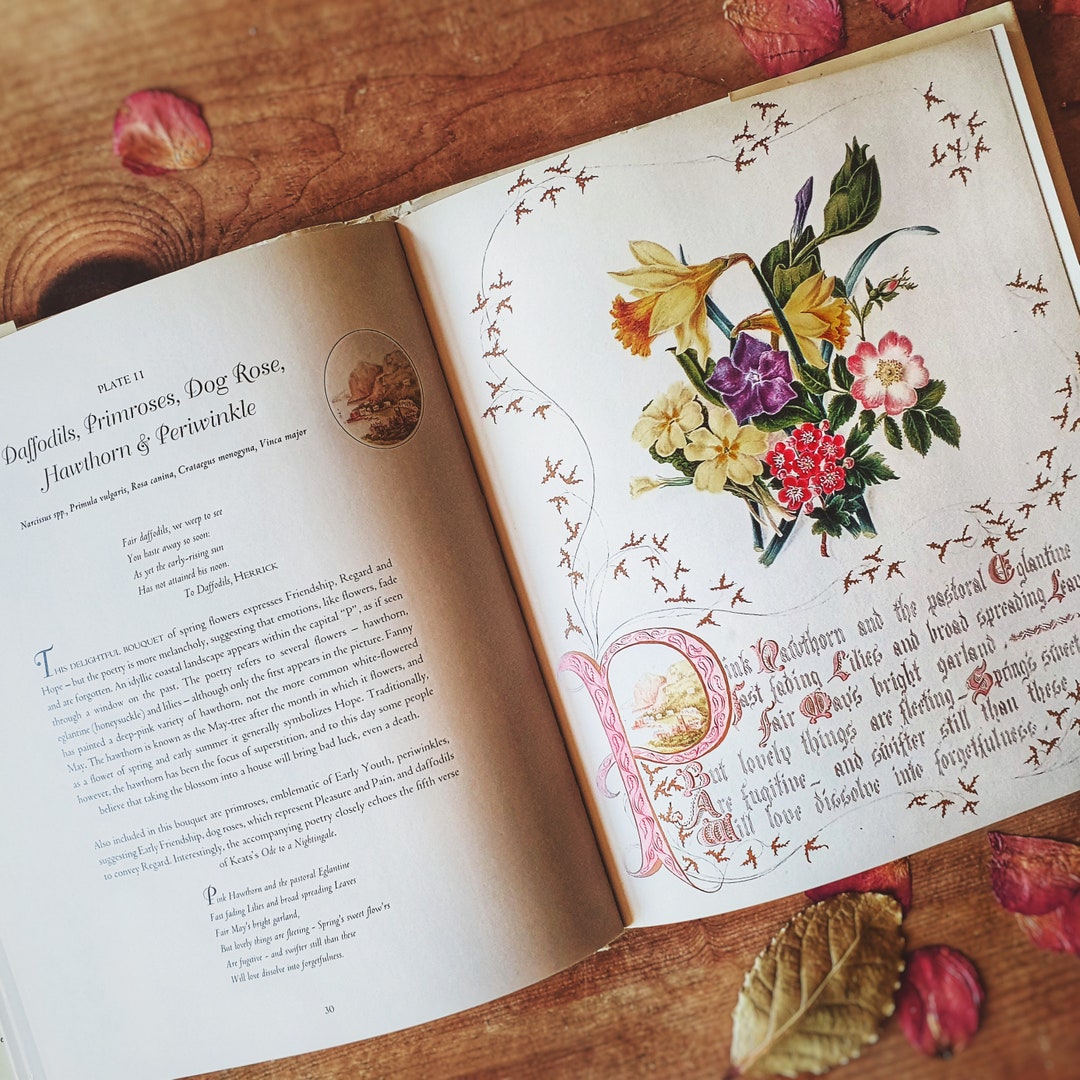 PLATE 11
Daffodils, Primroses, Dog Rose,
Hawthorn & Periwinkle
Narcissus spp., Primula vulgaris, Rosa canina, Crataegus monogyna, Vinca major
Fair daffodils, we weep to see
You haste away so soon:
As yet the early-rising sun
Has not attained his noon.
To Daffodils, HERRICK
THIS DELIGHTFUL BOUQUET of spring flowers expresses Friendship, Regard and
Hope – but the poetry is more melancholy, suggesting that emotions, like flowers, fade
and are forgotten. An idyllic coastal landscape appears within the capital "P", as if seen
through a window on the past. The poetry refers to several flowers – hawthorn,
eglantine (honeysuckle) and lilies – although only the first appears in the picture. Fanny
has painted a deep-pink variety of hawthorn, not the more common white-flowered
May. The hawthorn is known as the May-tree after the month in which it flowers, and
as a flower of spring and early summer it generally symbolizes Hope. Traditionally,
however, the hawthorn has been the focus of superstition, and to this day some people
believe that taking the blossom into a house will bring bad luck, even a death.
Also included in this bouquet are primroses, emblematic of Early Youth, periwinkles,
suggesting Early Friendship, dog roses, which represent Pleasure and Pain, and daffodils
to convey Regard. Interestingly, the accompanying poetry closely echoes the fifth verse
of Keats's Ode to a Nightingale.
Pink Hawthorn and the pastoral Eglantine
Fast fading Lilies and broad spreading Leaves
Fair May's bright garland,
But lovely things are fleeting – Spring's sweet flow'rs
Are fugitive – and swifter still than these
Will love dissolve into forgetfulness.
30
Pink Hawthorn and the pastoral Eglantine
Fast fading Lilies and broad spreading Leav
Fair May's bright garland
But lovely things are fleeting – Springs sweet
Are fugitive – and swifter still than these
Will love dissolve into forgetfulness.